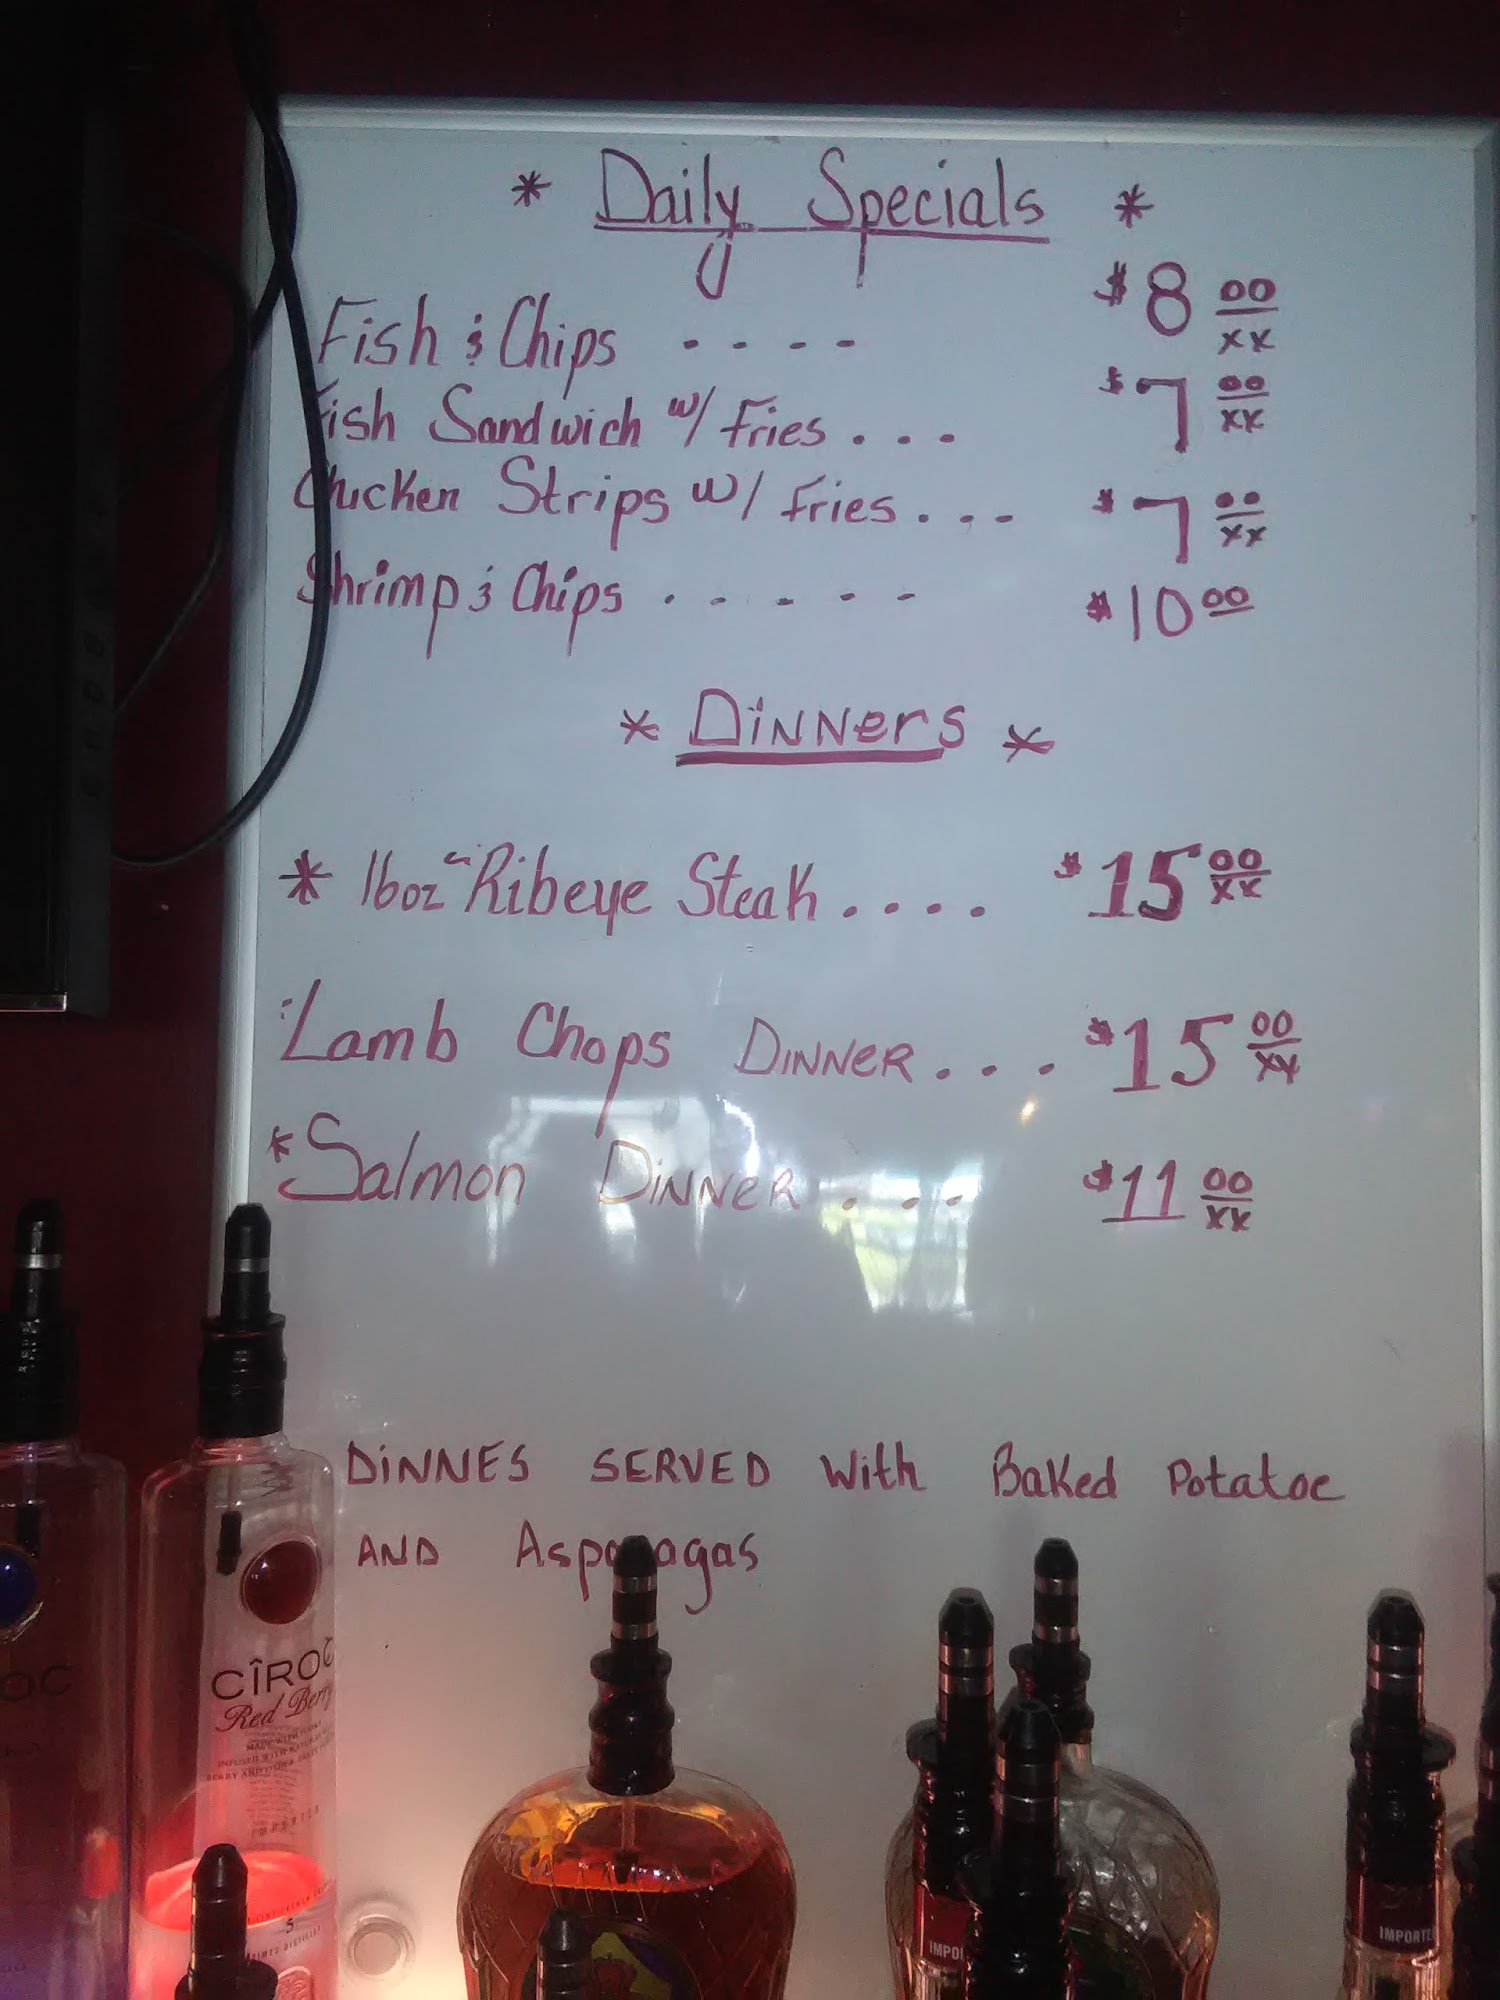 * Daily Specials *
Fish & Chips . . . . $8 00/xx
Fish Sandwich w/ Fries . . . $7 00/xx
Chicken Strips w/ Fries . . . $7 00/xx
Shrimp & Chips . . . . . $10 00
* Dinners *
* 16oz Ribeye Steak . . . . $15 00/xx
Lamb Chops Dinner . . . $15 00/xx
* Salmon Dinner . . . . $11 00/xx
DINNES SERVED With Baked Potatoe
AND Asparagas
CÎROC
Red Berry
MADE WITH VODKA
INFUSED WITH NATURAL
IMPORTED